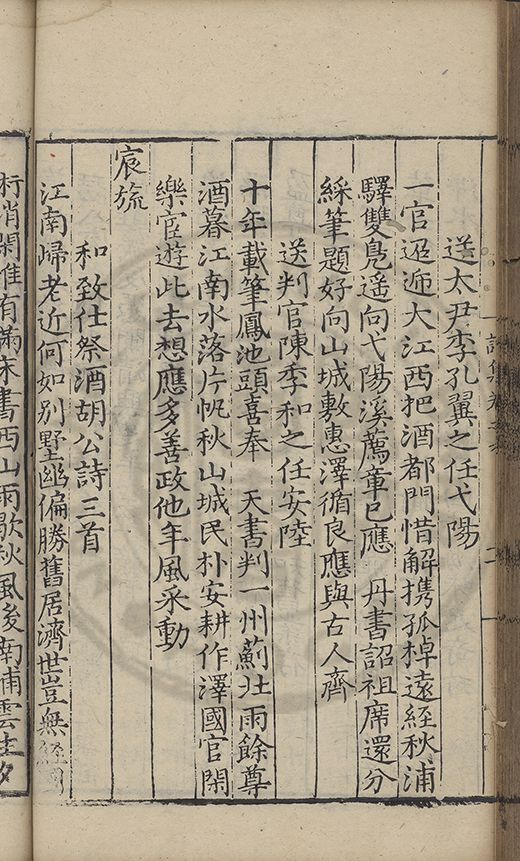 送太尹李孔翼之任弋陽
一官迢遞大江西把酒都門惜解携孤棹遠經秋浦
驛雙凫遥向弋陽溪薦章已應　丹書詔祖席還分
綵筆題好向山城敷惠澤循良應與古人齊
送判官陳季和之任安陸
十年載筆鳳池頭喜奉　天書判一州薊北雨餘尊
酒暮江南水落片帆秋山城民朴安耕作澤國官閑
樂宦遊此去想應多善政他年風采動
宸旒
和致仕祭酒胡公詩三首
江南歸老近何如别墅幽偏勝舊居濟世豈無經
消閑惟有滿床書西山雨歇秋風後南浦雲生夕